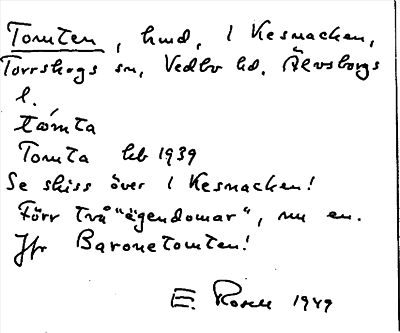 Tomten, hmd, 1 Kesnacken,
Torrskogs sn, Vedbo hd, Älvsborgs
l.
tò̀mta
Tomta hb 1939
Se skiss över 1 Kesnacken!
Förr två "ägendomar", nu en.
Jfr Baronetomten!
E. Rosell 1949